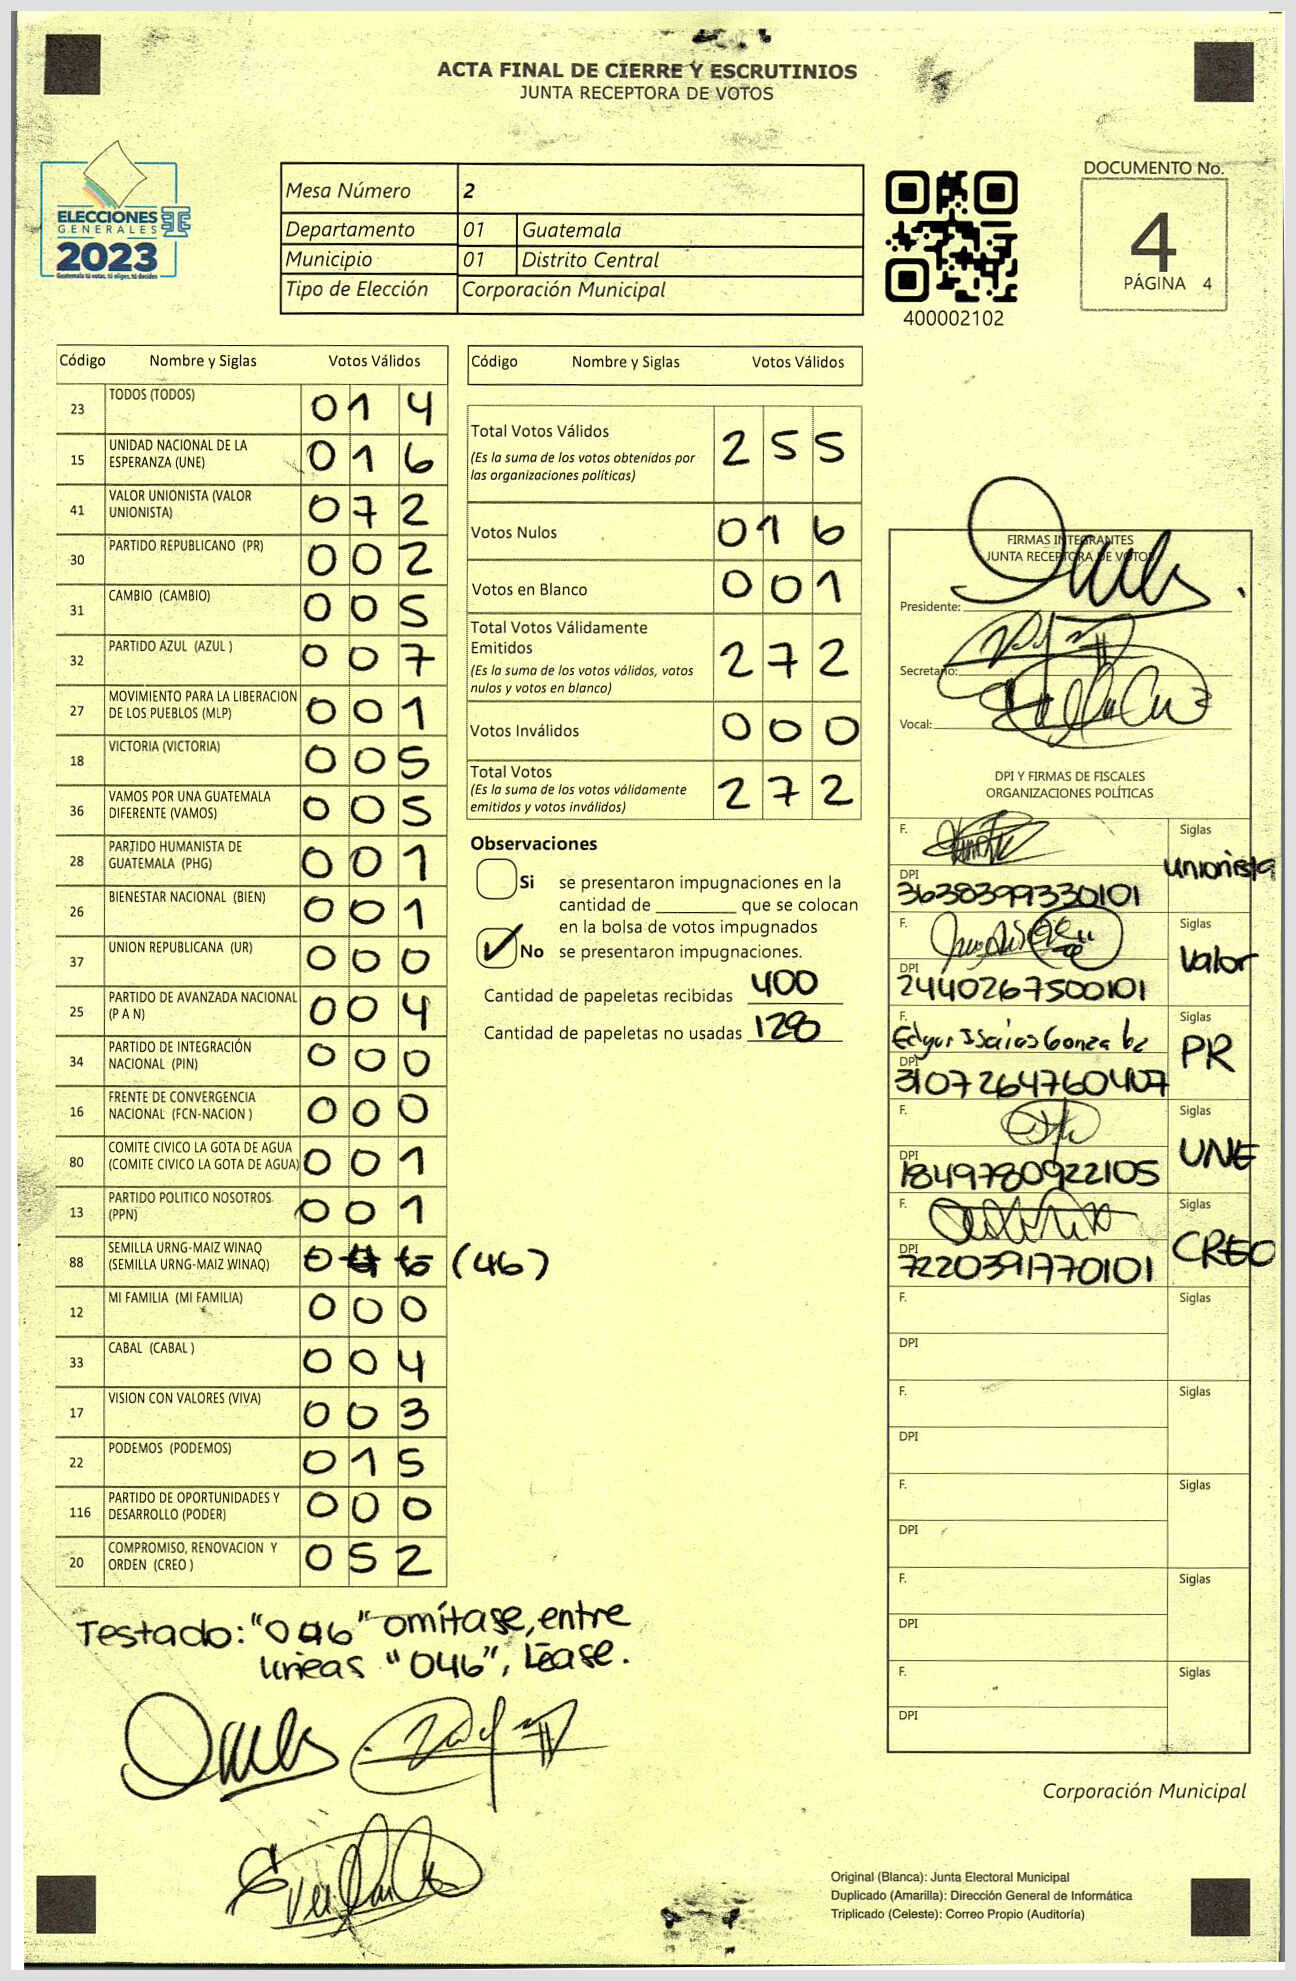 ACTA FINAL DE CIERRE Y ESCRUTINIOS
JUNTA RECEPTORA DE VOTOS
ELECCIONES
GENERALES
2023
Guatemala tú votas, tú eliges, tú decides
Mesa Número 2
Departamento 01 Guatemala
Municipio 01 Distrito Central
Tipo de Elección Corporación Municipal
400002102
DOCUMENTO No.
4
PÁGINA 4
Código Nombre y Siglas Votos Válidos
23 TODOS (TODOS) 0 1 4
15 UNIDAD NACIONAL DE LA ESPERANZA (UNE) 0 1 6
41 VALOR UNIONISTA (VALOR UNIONISTA) 0 7 2
30 PARTIDO REPUBLICANO (PR) 0 0 2
31 CAMBIO (CAMBIO) 0 0 5
32 PARTIDO AZUL (AZUL ) 0 0 7
27 MOVIMIENTO PARA LA LIBERACION DE LOS PUEBLOS (MLP) 0 0 1
18 VICTORIA (VICTORIA) 0 0 5
36 VAMOS POR UNA GUATEMALA DIFERENTE (VAMOS) 0 0 5
28 PARTIDO HUMANISTA DE GUATEMALA (PHG) 0 0 1
26 BIENESTAR NACIONAL (BIEN) 0 0 1
37 UNION REPUBLICANA (UR) 0 0 0
25 PARTIDO DE AVANZADA NACIONAL (P A N) 0 0 4
34 PARTIDO DE INTEGRACIÓN NACIONAL (PIN) 0 0 0
16 FRENTE DE CONVERGENCIA NACIONAL (FCN-NACION ) 0 0 0
80 COMITE CIVICO LA GOTA DE AGUA (COMITE CIVICO LA GOTA DE AGUA) 0 0 1
13 PARTIDO POLITICO NOSOTROS (PPN) 0 0 1
88 SEMILLA URNG-MAIZ WINAQ (SEMILLA URNG-MAIZ WINAQ) 0 4 6 (46)
12 MI FAMILIA (MI FAMILIA) 0 0 0
33 CABAL (CABAL ) 0 0 4
17 VISION CON VALORES (VIVA) 0 0 3
22 PODEMOS (PODEMOS) 0 1 5
116 PARTIDO DE OPORTUNIDADES Y DESARROLLO (PODER) 0 0 0
20 COMPROMISO, RENOVACION Y ORDEN (CREO ) 0 5 2
Testado: "046" omítase, entre
líneas "046", Léase.
Código Nombre y Siglas Votos Válidos
Total Votos Válidos 2 5 5
(Es la suma de los votos obtenidos por
las organizaciones políticas)
Votos Nulos 0 1 6
Votos en Blanco 0 0 1
Total Votos Válidamente
Emitidos 2 7 2
(Es la suma de los votos válidos, votos
nulos y votos en blanco)
Votos Inválidos 0 0 0
Total Votos 2 7 2
(Es la suma de los votos válidamente
emitidos y votos inválidos)
Observaciones
Si se presentaron impugnaciones en la
cantidad de ________ que se colocan
en la bolsa de votos impugnados
No se presentaron impugnaciones.
Cantidad de papeletas recibidas 400
Cantidad de papeletas no usadas 128
FIRMAS INTEGRANTES
JUNTA RECEPTORA DE VOTOS
Presidente:
Secretario:
Vocal:
DPI Y FIRMAS DE FISCALES
ORGANIZACIONES POLÍTICAS
F. Siglas
unionista
DPI
3638399330101
F. Siglas
Valor
DPI
2440267500101
F. Siglas
Edgar Isaías PR
DPI
3107264760407
F. Siglas
UNE
DPI
1849780922105
F. Siglas
CREO
DPI
7220391770101
F. Siglas
DPI
F. Siglas
DPI
F. Siglas
DPI
F. Siglas
DPI
F. Siglas
DPI
Corporación Municipal
Original (Blanca): Junta Electoral Municipal
Duplicado (Amarilla): Dirección General de Informática
Triplicado (Celeste): Correo Propio (Auditoría)